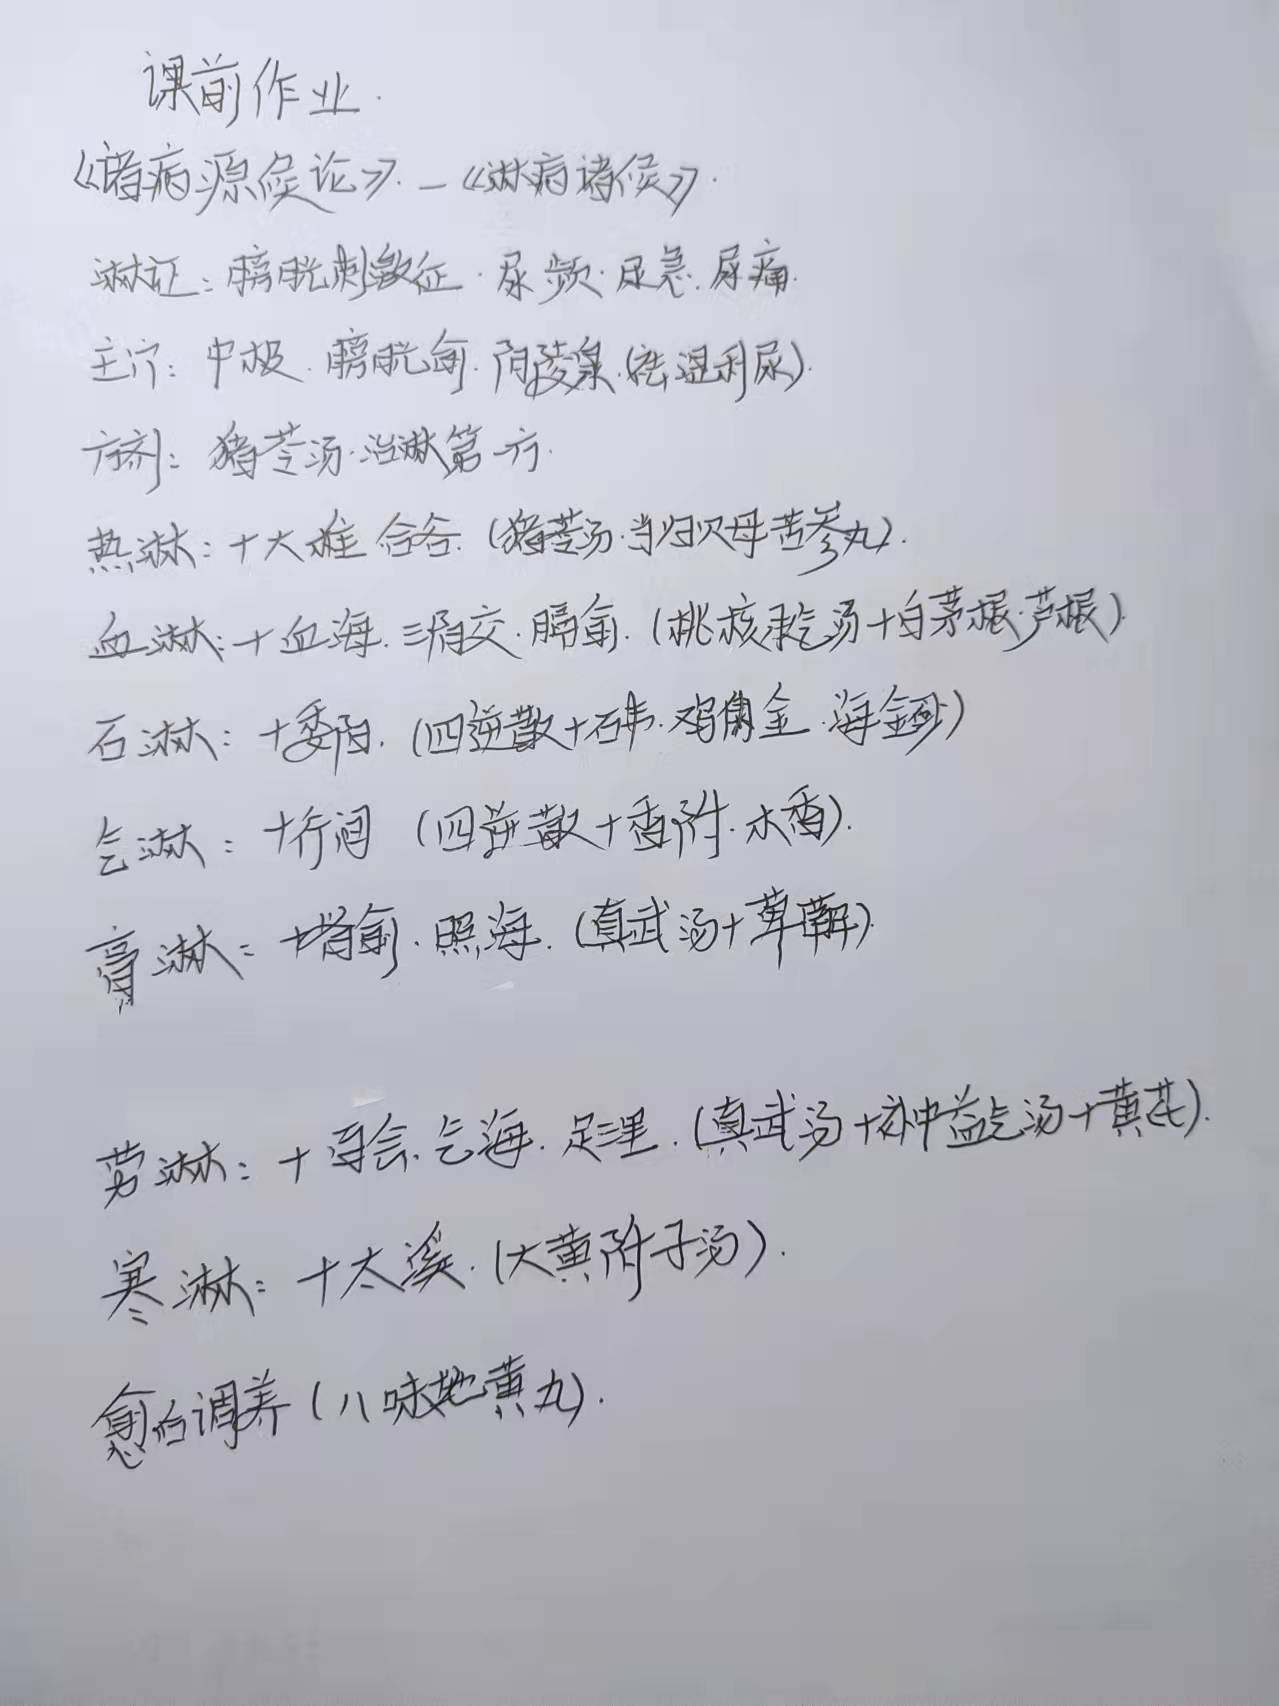 课前作业.
《诸病源候论》.—《淋病诸候》.
淋证：膀胱刺激征.尿频.尿急.尿痛.
主穴：中极.膀胱俞.阴陵泉.(祛湿利尿).
方剂：猪苓汤.治淋第一方.
热淋：+大椎 合谷.(猪苓汤.当归贝母苦参丸).
血淋：+血海.三阴交.膈俞.(桃核承气汤+白茅根.芦根).
石淋：+委阳.(四逆散+石韦.鸡内金.海金砂)
气淋：+行间 (四逆散+香附.木香).
膏淋：+肾俞.照海.(真武汤+萆薢).
劳淋：+百会.气海.足三里.(真武汤+补中益气汤+黄芪).
寒淋：+太溪.(大黄附子汤).
愈后调养(八味地黄丸).